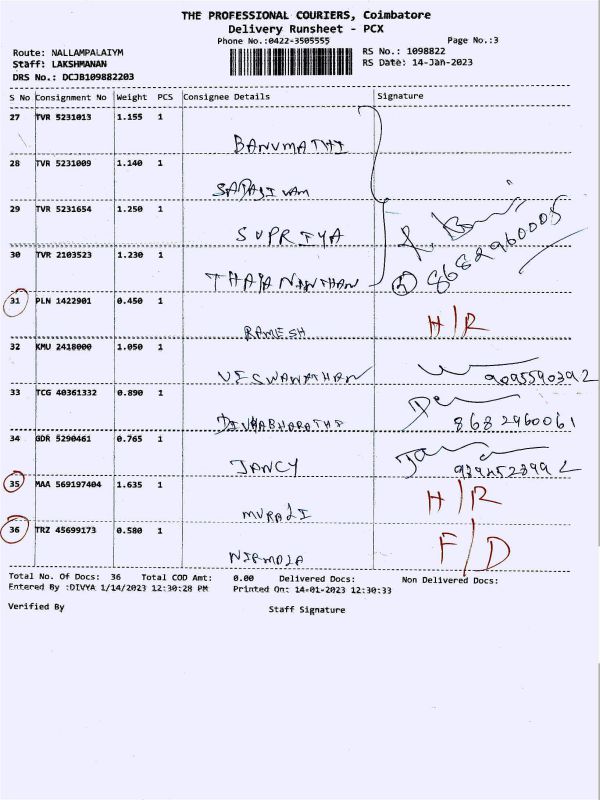 THE PROFESSIONAL COURIERS, Coimbatore
Delivery Runsheet - PCX
Phone No.:0422-3505555 Page No.:3
Route: NALLAMPALAIYM RS No.: 1098822
Staff: LAKSHMANAN RS Date: 14-Jan-2023
DRS No.: DCJB109882203
S No Consignment No Weight PCS Consignee Details Signature
27 TVR 5231013 1.155 1
BANUMATHI
28 TVR 5231009 1.140 1
SADASIVAM
29 TVR 5231654 1.250 1
SUPRIYA
30 TVR 2103523 1.230 1
THAYANANTHAN 8682960005
31 PLN 1422901 0.450 1
RAMESH H/R
32 KMU 2418000 1.050 1
VISWANATHAN 9095590392
33 TCG 40361332 0.890 1
DIVYABHARATHI 8682960061
34 GDR 5290461 0.765 1
JANCY
35 MAA 569197404 1.635 1
MURALI H/R
36 TRZ 45699173 0.580 1
NIRMOLA F/D
Total No. Of Docs: 36 Total COD Amt: 0.00 Delivered Docs: Non Delivered Docs:
Entered By :DIVYA 1/14/2023 12:30:28 PM Printed On: 14-01-2023 12:30:33
Verified By Staff Signature